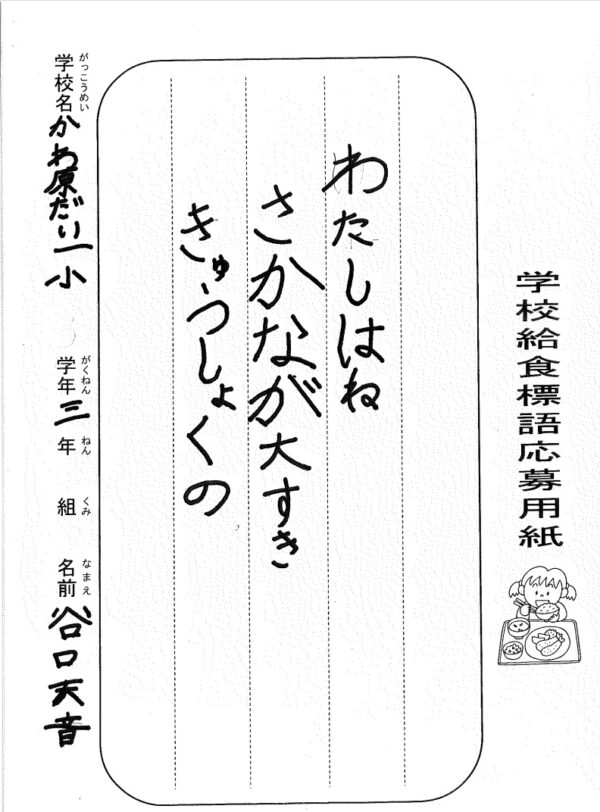 学校給食標語応募用紙
わたしはね
さかなが大すき
きゅうしょくの
学校名 がっこうめい かわ原だい一小 学年 がくねん 三年 ねん 組 くみ 名前 なまえ 谷口天音